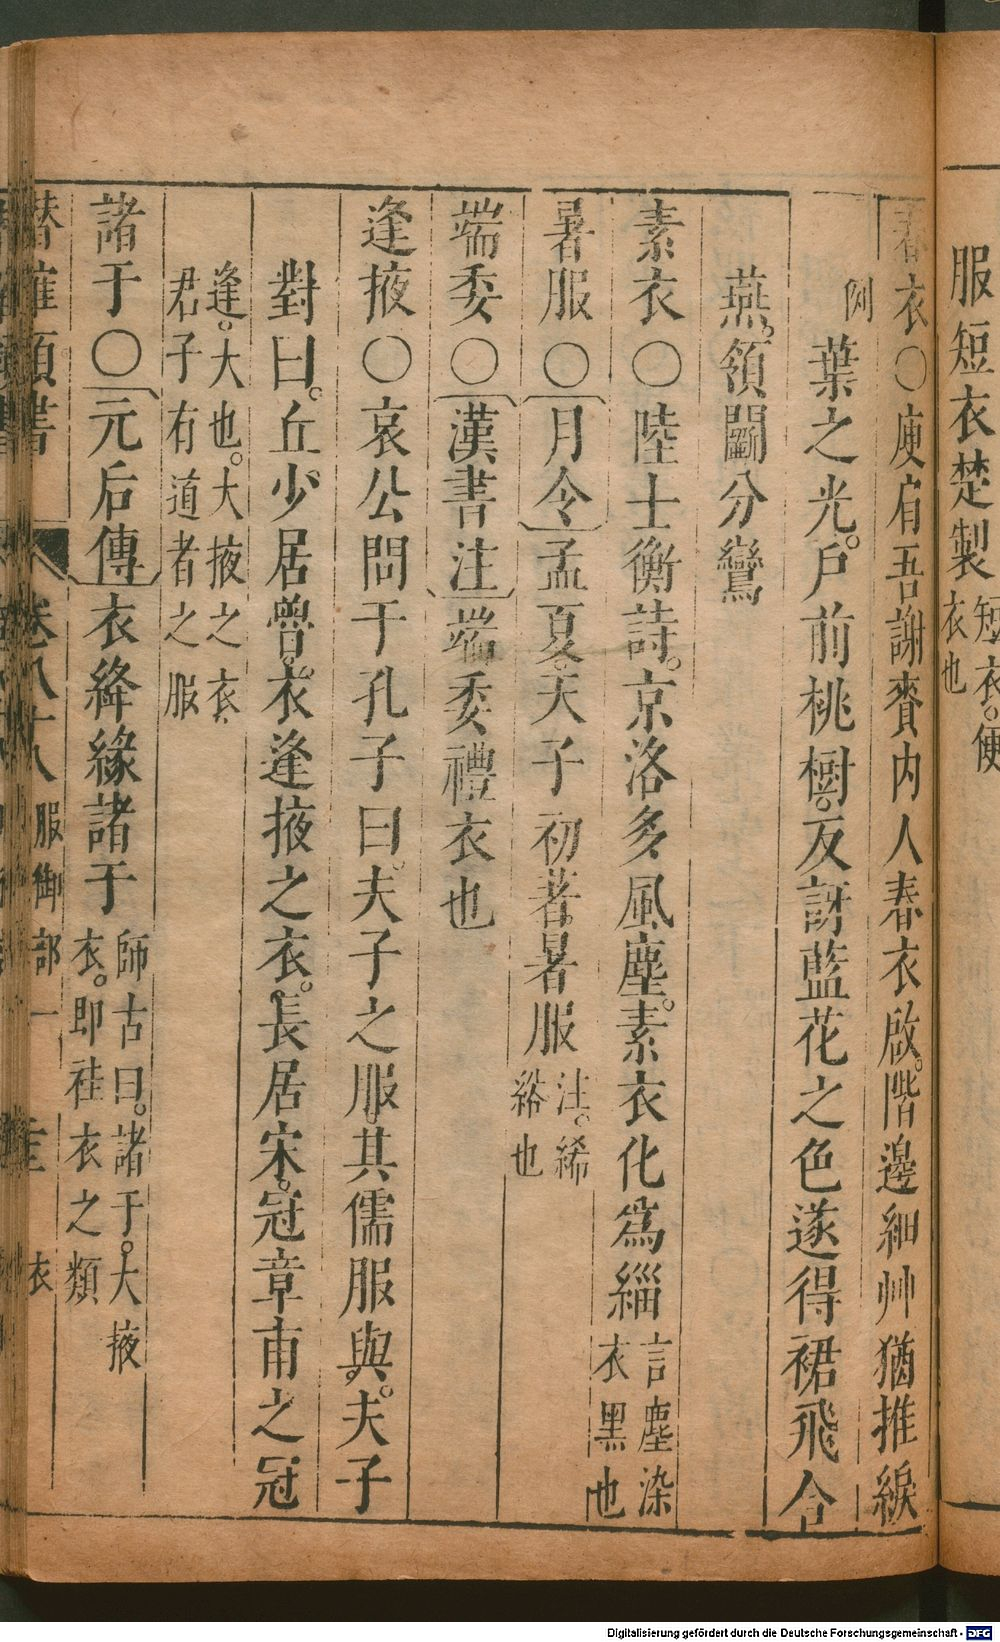 服短衣楚製短衣。便
衣也
春衣〇庾肩吾謝賚内人春衣啟。階邊細艸猶推綟
例
葉之光。戸前桃樹。反訝藍花之色遂得裙飛合
燕。領鬭分鸞
素衣〇陸士衡詩。京洛多風塵。素衣化爲緇言塵染
衣黑也
暑服〇月令孟夏。天子初著暑服注。絺
綌也
端委〇漢書注端委禮衣也
逢掖〇哀公問于孔子曰。夫子之服。其儒服與。夫子
對曰。丘少居魯。衣逢掖之衣。長居宋。冠章甫之冠
逢。大也。大掖之衣。
君子有道者之服
諸于〇元后傳衣絳緣諸于師古曰。諸于。大掖
衣。即袿衣之類
潜確類書
卷八十八 服御部一 衣
Digitalisierung gefördert durch die Deutsche Forschungsgemeinschaft - DFG